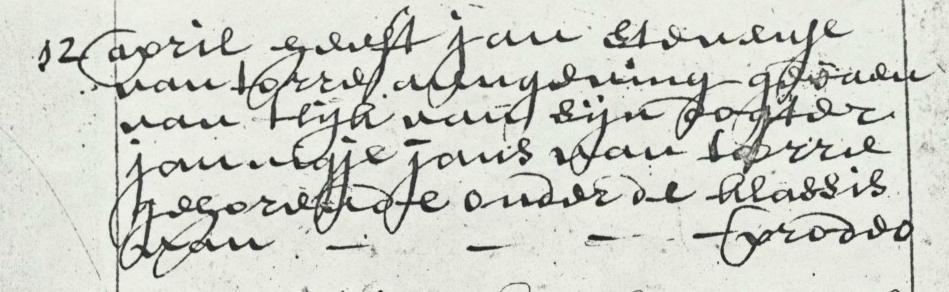 12 april heeft jan stevense
van torre aangeving gedaen
van t lijk van sijn dogter
jannigje jans van torre
gehorende onder de klassis
van - - - - prodeo